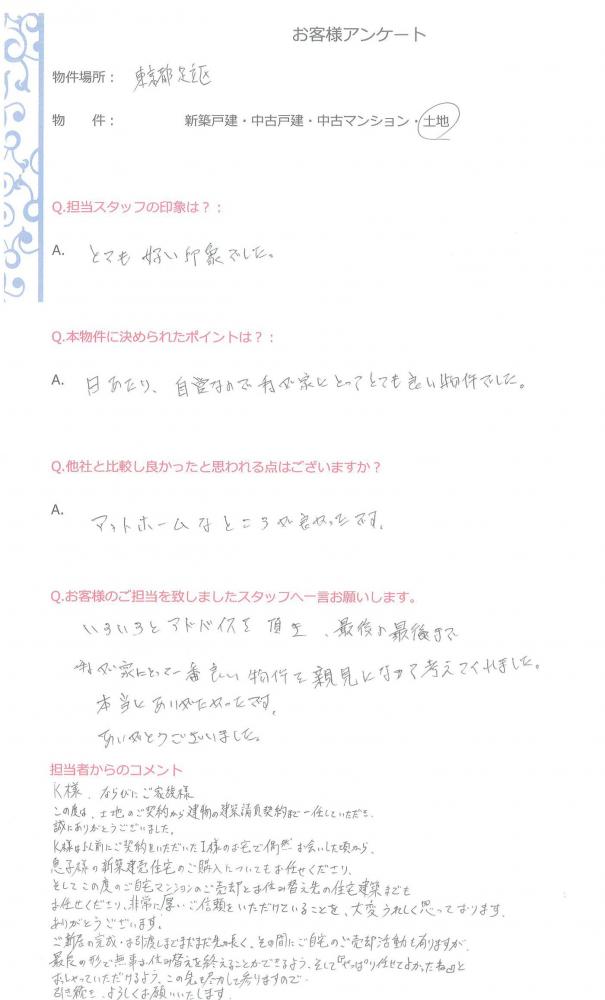 お客様アンケート
物件場所： 東京都足立区
物　件： 新築戸建・中古戸建・中古マンション・土地
Q.担当スタッフの印象は？：
A. とても好い印象でした。
Q.本物件に決められたポイントは？：
A. 日あたり、自営なので我が家にとってとても良い物件でした。
Q.他社と比較し良かったと思われる点はございますか？
A. アットホームなところが良かったです。
Q.お客様のご担当を致しましたスタッフへ一言お願いします。
いろいろとアドバイスを頂き、最後の最後まで
我が家にとって一番良い物件を親見になって考えてくれました。
本当にありがたかったです。
ありがとうございました。
担当者からのコメント
K様、ならびにご家族様
この度は、土地のご契約から建物の建築請負契約まで一任していただき
誠にありがとうございました。
K様は以前にご契約をいただいたI様のお宅で偶然お会いした頃から、
息子様の新築建売住宅のご購入についてもお任せくださり、
そしてこの度のご自宅マンションのご売却とお住み替え先の住宅建築までも
お任せくださり、非常に厚いご信頼をいただけていることを、大変うれしく思っております。
ありがとうございます。
ご新居の完成・お引渡しまでまだまだ先が長く、その間にご自宅のご売却活動も有りますが、
最良の形で無事お住み替えを終えることができるよう、そして『やっぱり任せてよかったね』と
おっしゃっていただけるよう、この先も尽力して参りますので
引き続き、よろしくお願いいたします。